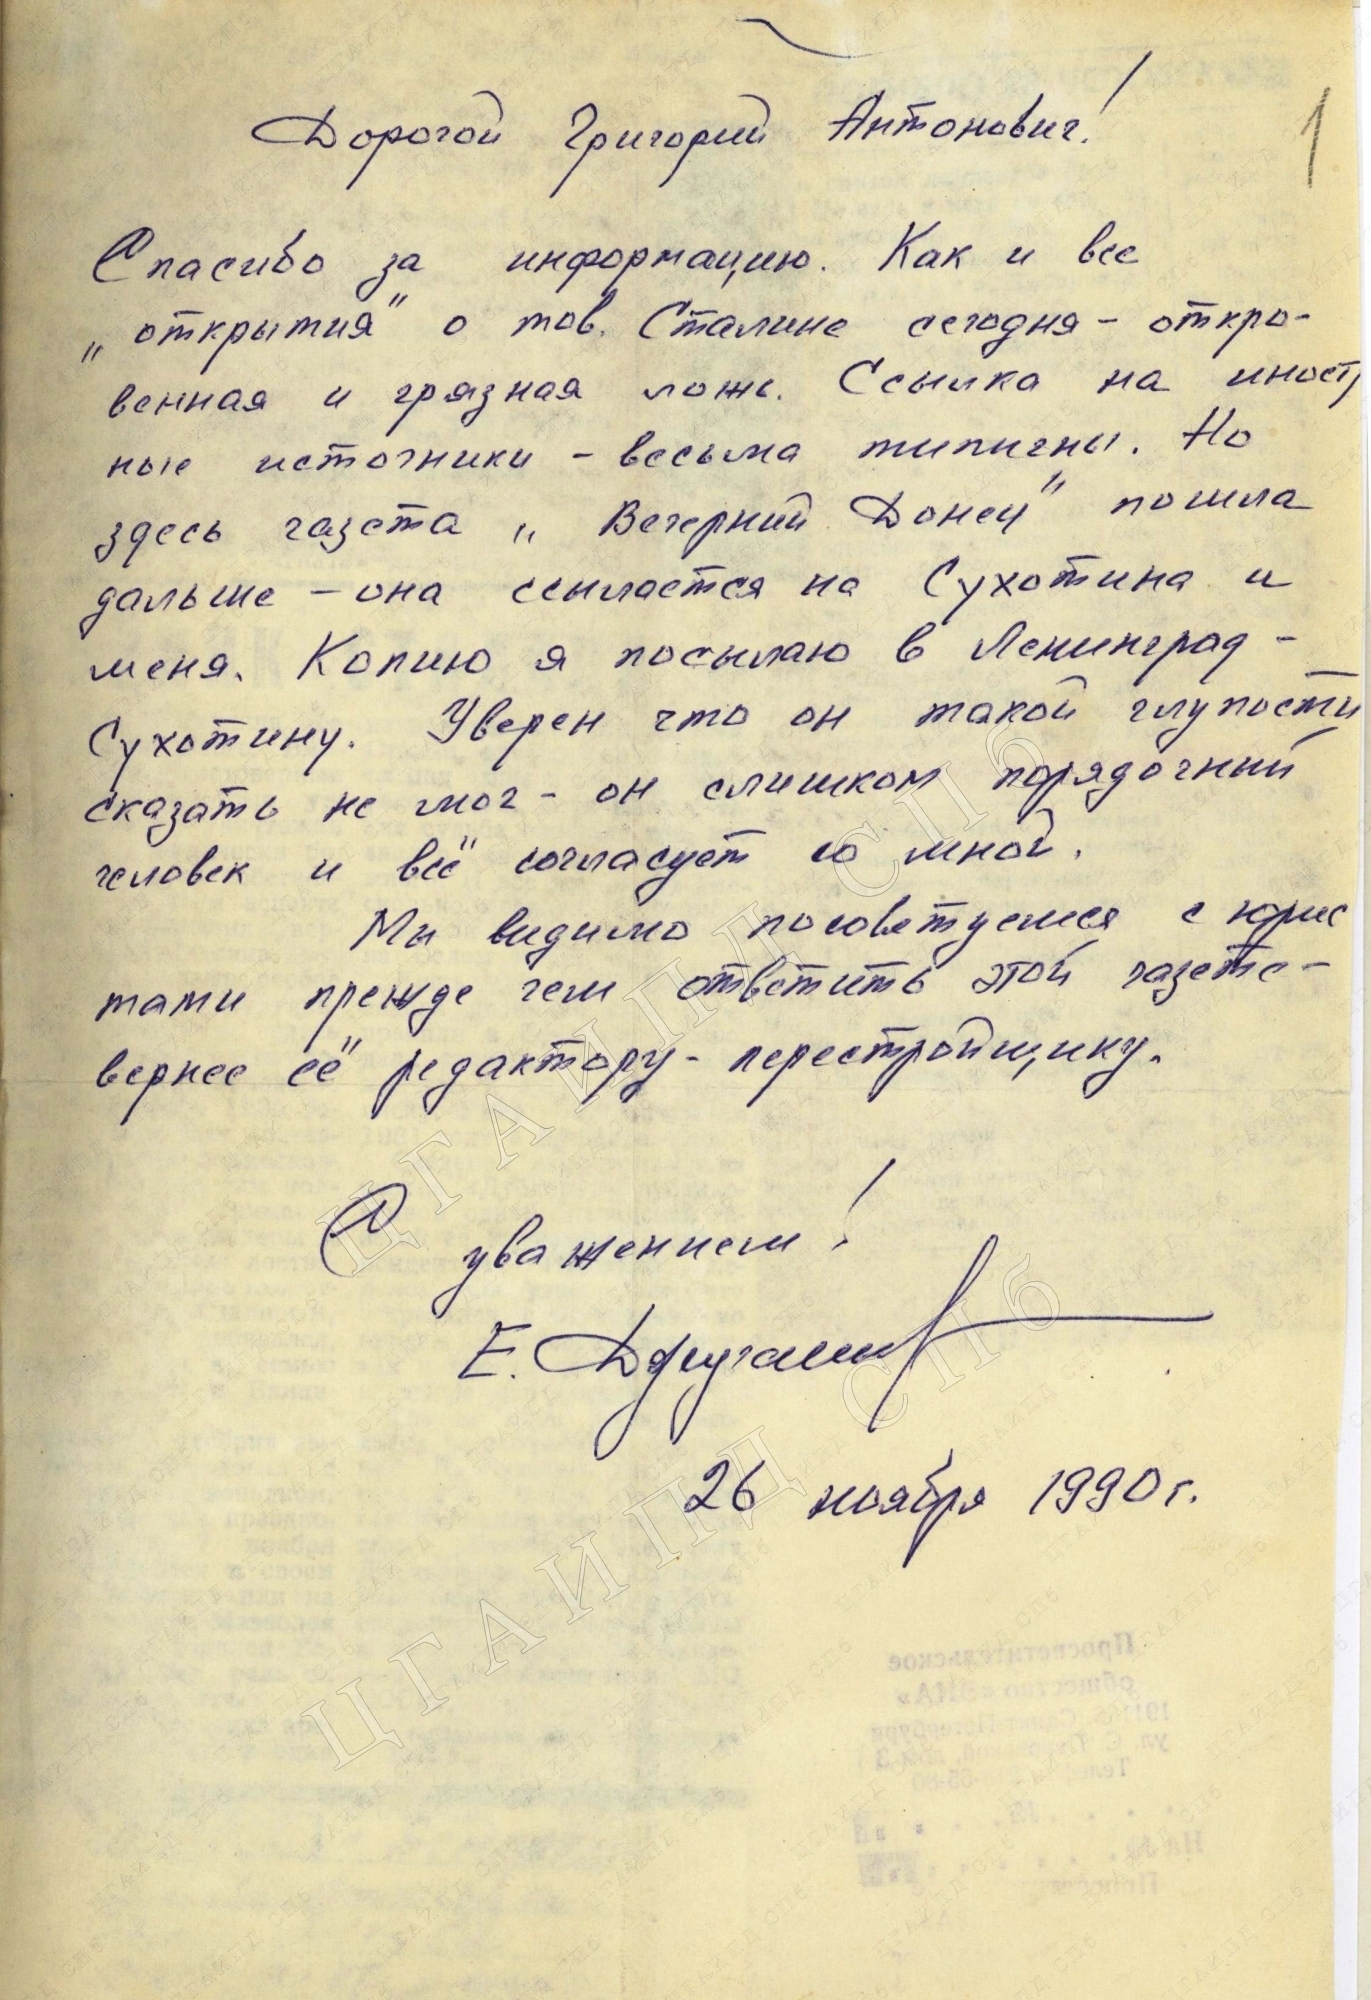 1
Дорогой Григорий Антонович!
Спасибо за информацию. Как и все
„открытия" о тов. Сталине сегодня – откро-
венная и грязная ложь. Ссылка на иностр
ные источники – весьма типичны. Но
здесь газета „Вечерний Донецк" пошла
дальше – она ссылается на Сухотина и
меня. Копию я посылаю в Ленинград –
Сухотину. Уверен что он такой глупости
сказать не мог – он слишком порядочный
человек и всё согласует со мной.
Мы видимо посоветуемся с юрис
тами прежде чем ответить этой газете –
вернее её редактору - перестройщику.
С уважением!
Е. Джугашв
26 ноября 1990 г.
ЦГАИПД СПб
ЦГАИПД СПб
Просветительское